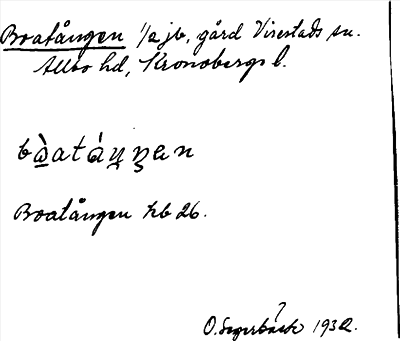 Boatången 1/2 jb, gård Virestads sn.
Allbo hd, Kronobergs l.
bò̱atáŋ̱ŋen
Boatången kb 26.
?
O. Segerbäck 1932.